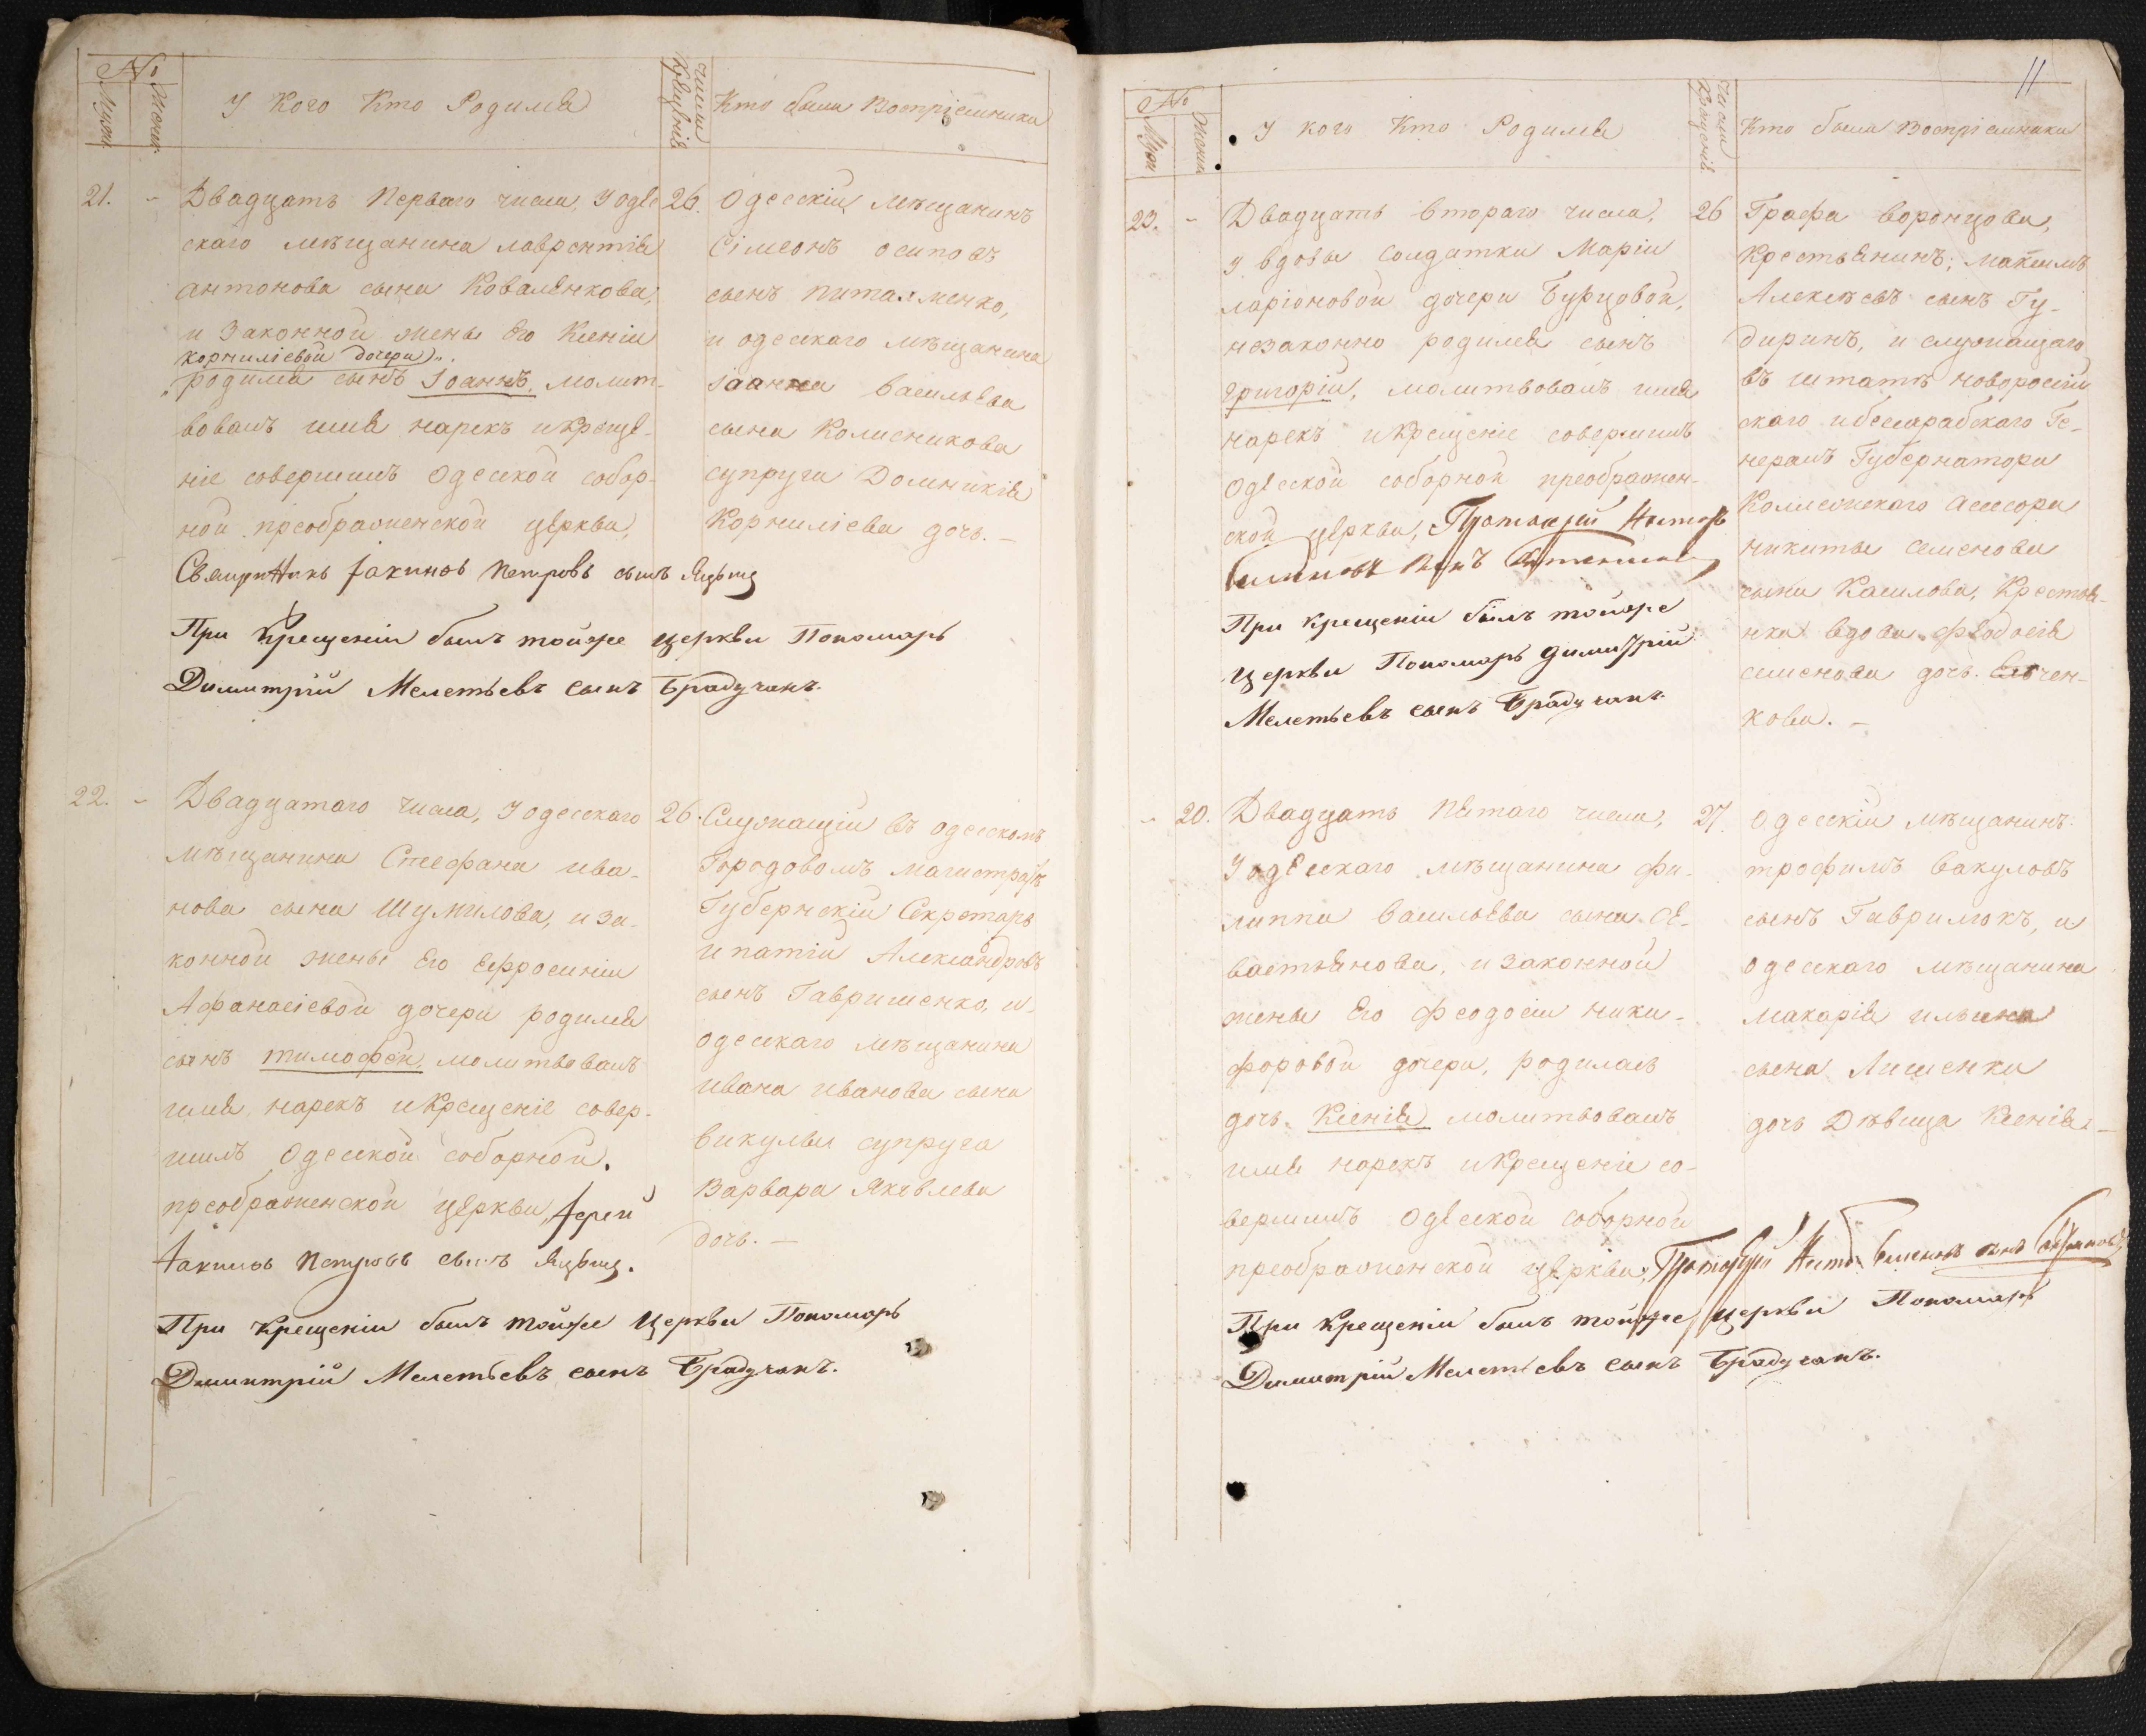 №
Мужи
Женск
У Кого Кто Родилсѧ
Числа Крещенія
Кто были Воспріемники
21. -
Двадцать Перваго числа, У оде
скаго мѣщанина лаврентіѧ
антонова сына Коваленкова,
и Законной жены Его Ксеніи
корниліевой дочери
родилсѧ сынъ Іоаннъ, молит-
вовалъ имѧ нарекъ и Креще-
ніе совершилъ Одесской собор-
ной преображенской церкви,
Священникъ Іакинѳъ Петровъ сынъ
При Крещеніи былъ тойже церкви Пономарь
Димитрій Мелетьевъ сынъ Брадучанъ.
26.
Одесскій Мѣщанинъ
Сімеонъ осиповъ
сынъ питаименко,
и одесскаго мѣщанина
іоанна васильева
сына Колисникова
супруга Домникіѧ
Корниліева дочь. -
22. -
Двадцатаго числа, У одесскаго
Мѣщанина Стефана ива-
нова сына Шумилова, и за-
конной жены Его Ефросиніи
Афанасіевой дочери родилсѧ
сынъ тимофей, молитвовалъ
имѧ нарекъ и Крещеніе совер-
шилъ Одесской соборной
преображенской церкви, Іерей
Іакинѳъ Петровъ сынъ
При Крещеніи былъ тойже Церкви Пономарь
Димитрій Мелетьевъ сынъ Брадучанъ.
26.
Служащій въ одесскомъ
Городовомъ магистратѣ
Губернскій Секретарь
ипатій Александровъ
сынъ Гавришенко, и
одесскаго мѣщанина
ивана иванова сына
викулы супруга
Варвара Яковлева
дочь. -
11
№
Мужи
Женски
У кого Кто Родилсѧ
Числа Крещенія
Кто были Воспріемники
23. -
Двадцать втораго числа,
У вдовы Солдатки Маріи
ларіоновой дочери Бурцовой,
незаконно родилсѧ сынъ
Григорій, молитвовалъ имѧ
нарекъ и Крещеніе совершилъ
Одесской соборной преображен-
ской церкви, Протоіерей
При Крещеніи былъ тойже
Церкви Пономарь Димитрій
Мелетьевъ сынъ Брадучанъ.
26
Графа воронцова,
Крестьѧнинъ, максимъ
Алексѣевъ сынъ Гу-
диринъ, и служащаго
въ штатѣ новоросій
скаго и бессарабскаго Ге-
нералъ Губернатора
Колежскаго Асессора
никиты семенова
сына Касилова, Крестьѧ-
нка вдова Феодосіѧ
семенова дочь
кова. -
- 20.
Двадцать Пѧтаго числа,
У одесскаго мѣщанина фи-
липпа васильева сына Се-
вастьѧнова, и законной
жены Его Феодосіи ники-
форовой дочери, родилась
дочь Ксеніѧ молитвовалъ
имѧ нарекъ и Крещеніе со-
вершилъ Одесской соборной
преображенской церкви, Протоіерей
При Крещеніи былъ тойже Церкви Пономарь
Димитрій Мелетьевъ сынъ Брадучанъ.
27.
Одесскій мѣщанинъ
трофимъ вакуловъ
сынъ Гаврилюкъ, и
одесскаго мѣщанина
макаріѧ ильина
сына Лишенки
дочь Дѣвица Ксеніѧ. -